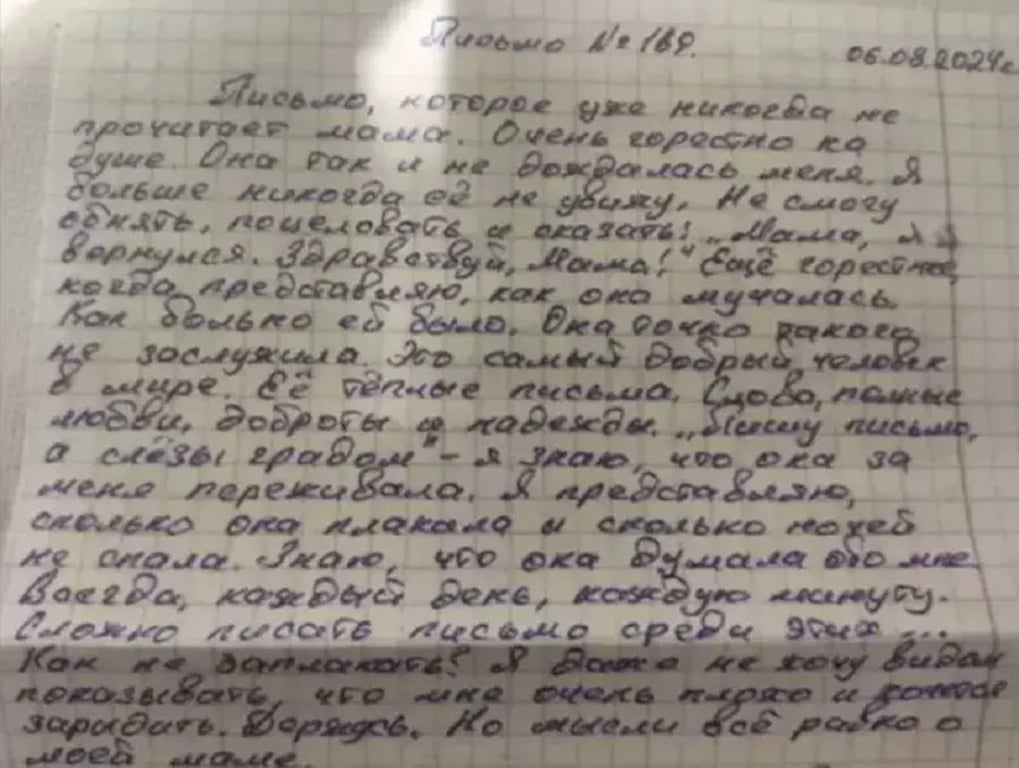 Письмо № 169.
06.08.2024г
Письмо, которое уже никогда не
прочитает мама. Очень горестно на
душе. Она так и не дождалась меня. Я
больше никогда её не увижу. Не смогу
обнять, поцеловать и сказать: „Мама, я
вернулся. Здравствуй, Мама!" Ещё горестнее,
когда представляю, как она мучалась.
Как больно ей было. Она точно такого
не заслужила. Это самый добрый человек
в мире. Её тёплые письма. Слова, полные
любви, доброты и надежды. „Пишу письмо,
а слёзы градом" - я знаю, что она за
меня переживала. Я представляю,
сколько она плакала и сколько ночей
не спала. Знаю, что она думала обо мне
всегда, каждый день, каждую минуту.
Сложно писать письмо среди этих ...
Как не заплакать? Я даже не хочу видам
показывать, что мне очень плохо и хочется
зарыдать. Держусь. Но мысли всё равно о
моей маме.